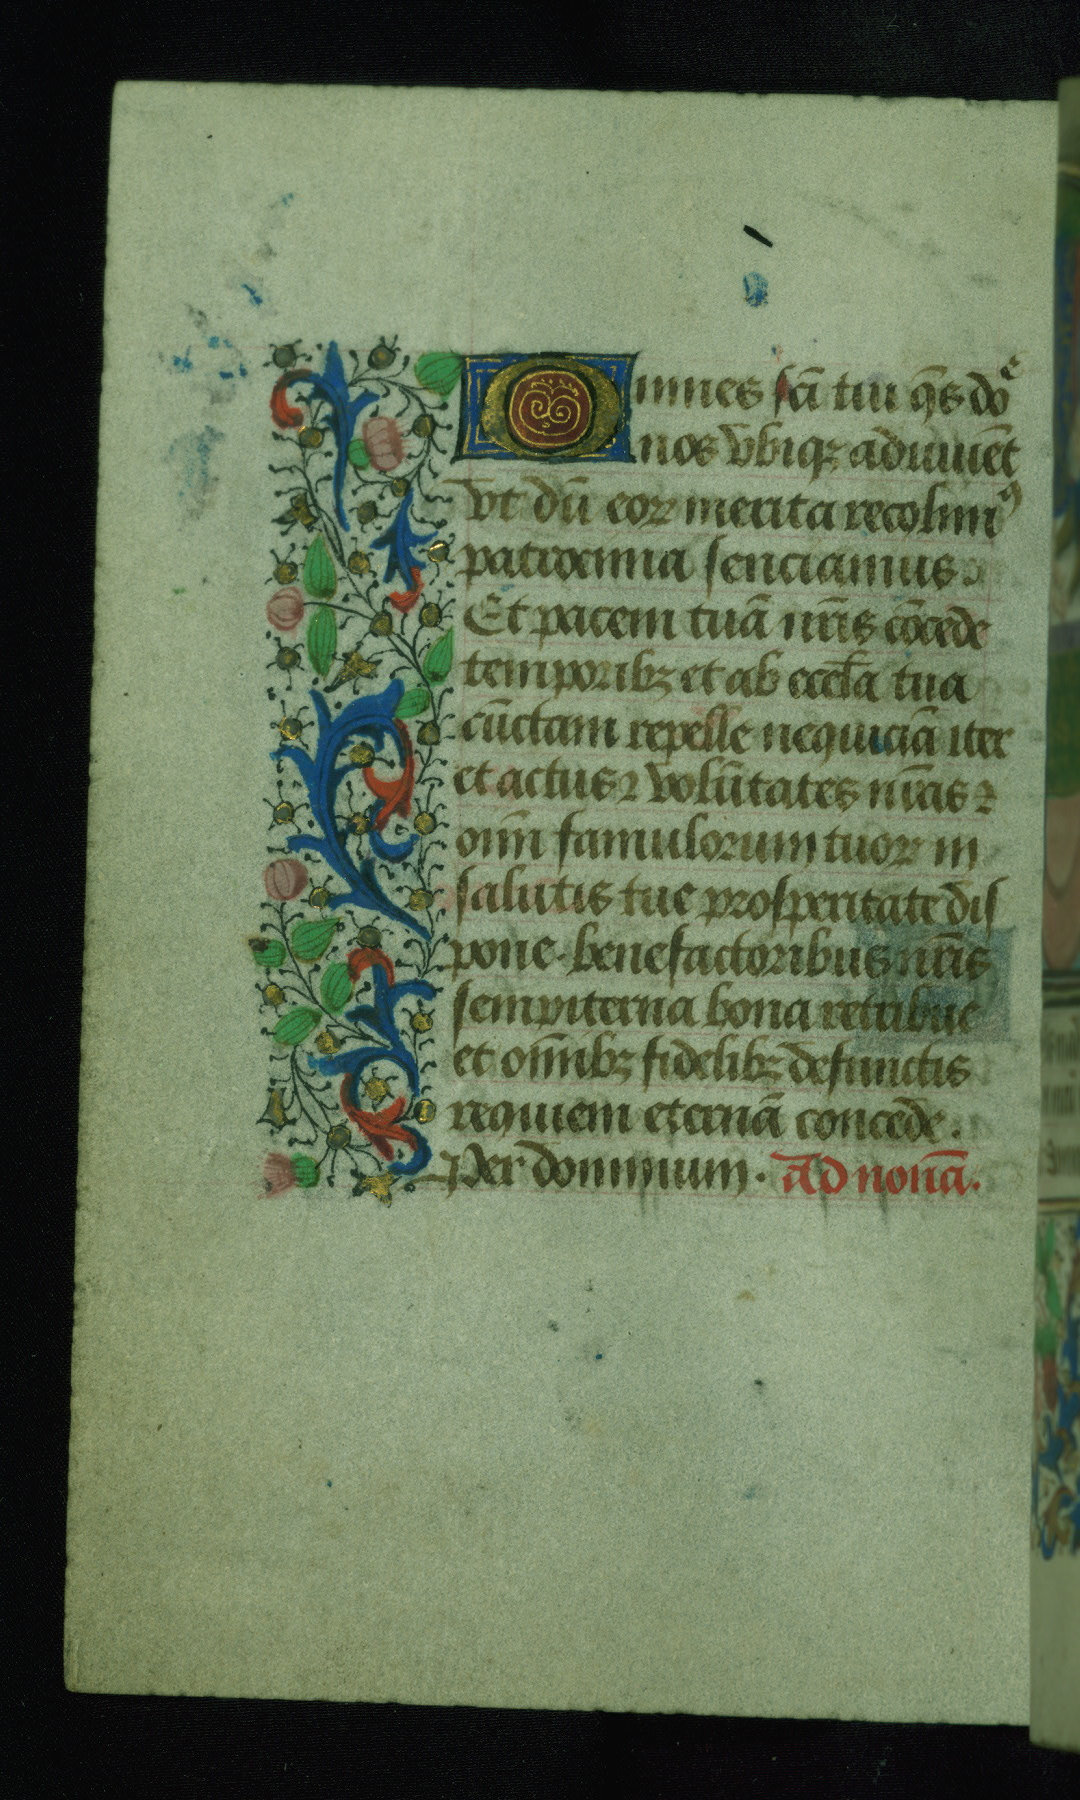 Omnes sc̄i tui q̄s dōe
nos vbiq₃ adiuuēt
vt dū eoꝝ merita recolimꝰ
patrocinia senciamus.
Et pacem tuā nr̄is cōcede
temporib₃ et ab eccl̄a tua
cūctam repelle nequiciā iter
et actus ⁊ volūtates nr̄as ⁊
oīm famulorum tuoꝝ in
salutis tue prosperitate dis
pone. benefactoribus nr̄is
sempiterna bona retribue
et oīmib₃ fidelib₃ defunctis
requiem eternā concede.
Per dominum. Ad nonā.